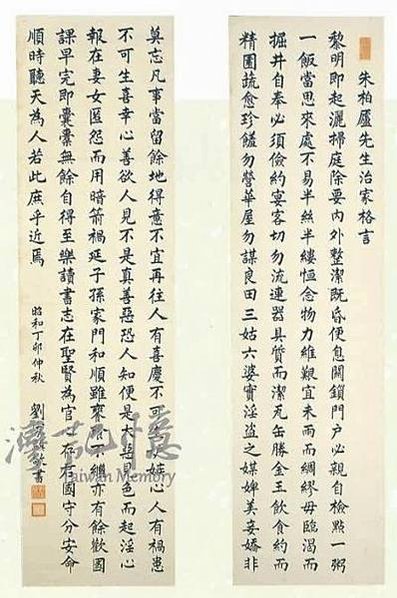 朱柏廬先生治家格言
黎明即起灑掃庭除要內外整潔既昏便息關鎖門戶必親自檢點一粥
一飯當思來處不易半絲半縷恒念物力維艱宜未雨而綢繆毋臨渴而
掘井自奉必須儉約宴客切勿流連器具質而潔瓦缶勝金玉飲食約而
精園蔬愈珍饈勿營華屋勿謀良田三姑六婆實淫盜之媒婢美妾嬌非
莫忘凡事當留餘地得意不宜再往人有喜慶不可嫉心人有禍患
不可生喜幸心善欲人見不是真善惡恐人知便是大惡見色而起淫心
報在妻女匿怨而用暗箭禍延子孫家門和順雖饔繼亦有餘歡國
課早完即囊橐無餘自得至樂讀書志在聖賢為官存國守分安命
順時聽天為人若此庶乎近焉
昭和丁卯仲秋 劉書
臺灣記憶
Taiwan Memory